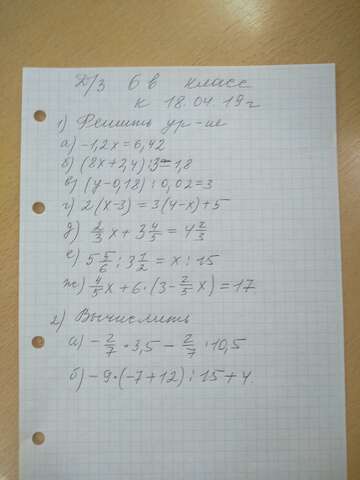 Д/з 6 в класс
к 18.04.19 г
1) Решить ур-ие
а) -1,2x = 6,42
б) (8x + 2,4) : 3 = 1,8
в) (y - 0,18) : 0,02 = 3
г) 2(x-3) = 3(4-x) + 5
д) 2/3 x + 3 4/5 = 4 2/3
е) 5 5/6 : 3 1/2 = x : 15
ж) 4/5 x + 6·(3 - 2/5 x) = 17
2) Вычислить
а) - 2/7 · 3,5 - 2/7 : 10,5
б) -9·(-7+12) : 15 + 4.